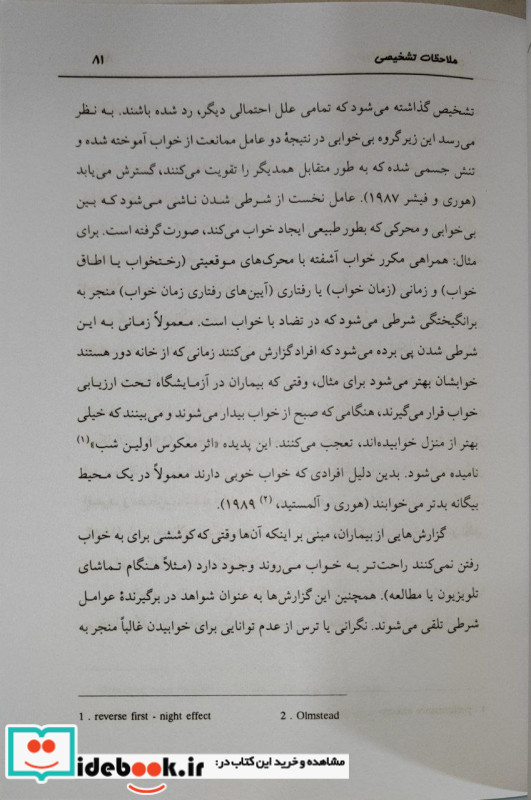 ملاحظات تشخیصی ۸۱
تشخیص گذاشته می‌شود که تمامی علل احتمالی دیگر، رد شده باشند. به نظر
می‌رسد این زیرگروه بی‌خوابی در نتیجهٔ دو عامل ممانعت از خواب آموخته شده و
تنش جسمی شده که به طور متقابل همدیگر را تقویت می‌کنند، گسترش می‌یابد
(هوری و فیشر ۱۹۸۷). عامل نخست از شرطی شدن ناشی می‌شود که بین
بی‌خوابی و محرکی که بطور طبیعی ایجاد خواب می‌کند، صورت گرفته است. برای
مثال: همراهی مکرر خواب آشفته با محرک‌های موقعیتی (رختخواب یا اطاق
خواب) و زمانی (زمان خواب) یا رفتاری (آیین‌های رفتاری زمان خواب) منجر به
برانگیختگی شرطی می‌شود که در تضاد با خواب است. معمولاً زمانی به این
شرطی شدن پی برده می‌شود که افراد گزارش می‌کنند زمانی که از خانه دور هستند
خوابشان بهتر می‌شود برای مثال، وقتی که بیماران در آزمایشگاه تحت ارزیابی
خواب قرار می‌گیرند، هنگامی که صبح از خواب بیدار می‌شوند و می‌بینند که خیلی
بهتر از منزل خوابیده‌اند، تعجب می‌کنند. این پدیده «اثر معکوس اولین شب»(۱)
نامیده می‌شود. بدین دلیل افرادی که خواب خوبی دارند معمولاً در یک محیط
بیگانه بدتر می‌خوابند (هوری و آلمستید، (۲) ۱۹۸۹).
گزارش‌هایی از بیماران، مبنی بر اینکه آن‌ها وقتی که کوششی برای به خواب
رفتن نمی‌کنند راحت‌تر به خواب می‌روند وجود دارد (مثلاً هنگام تماشای
تلویزیون یا مطالعه). همچنین این گزارش‌ها به عنوان شواهد در برگیرندهٔ عوامل
شرطی تلقی می‌شوند. نگرانی یا ترس از عدم توانایی برای خوابیدن غالباً منجر به
1 . reverse first - night effect 2 . Olmstead
مشاهده و خرید این کتاب در:
idebook.ir